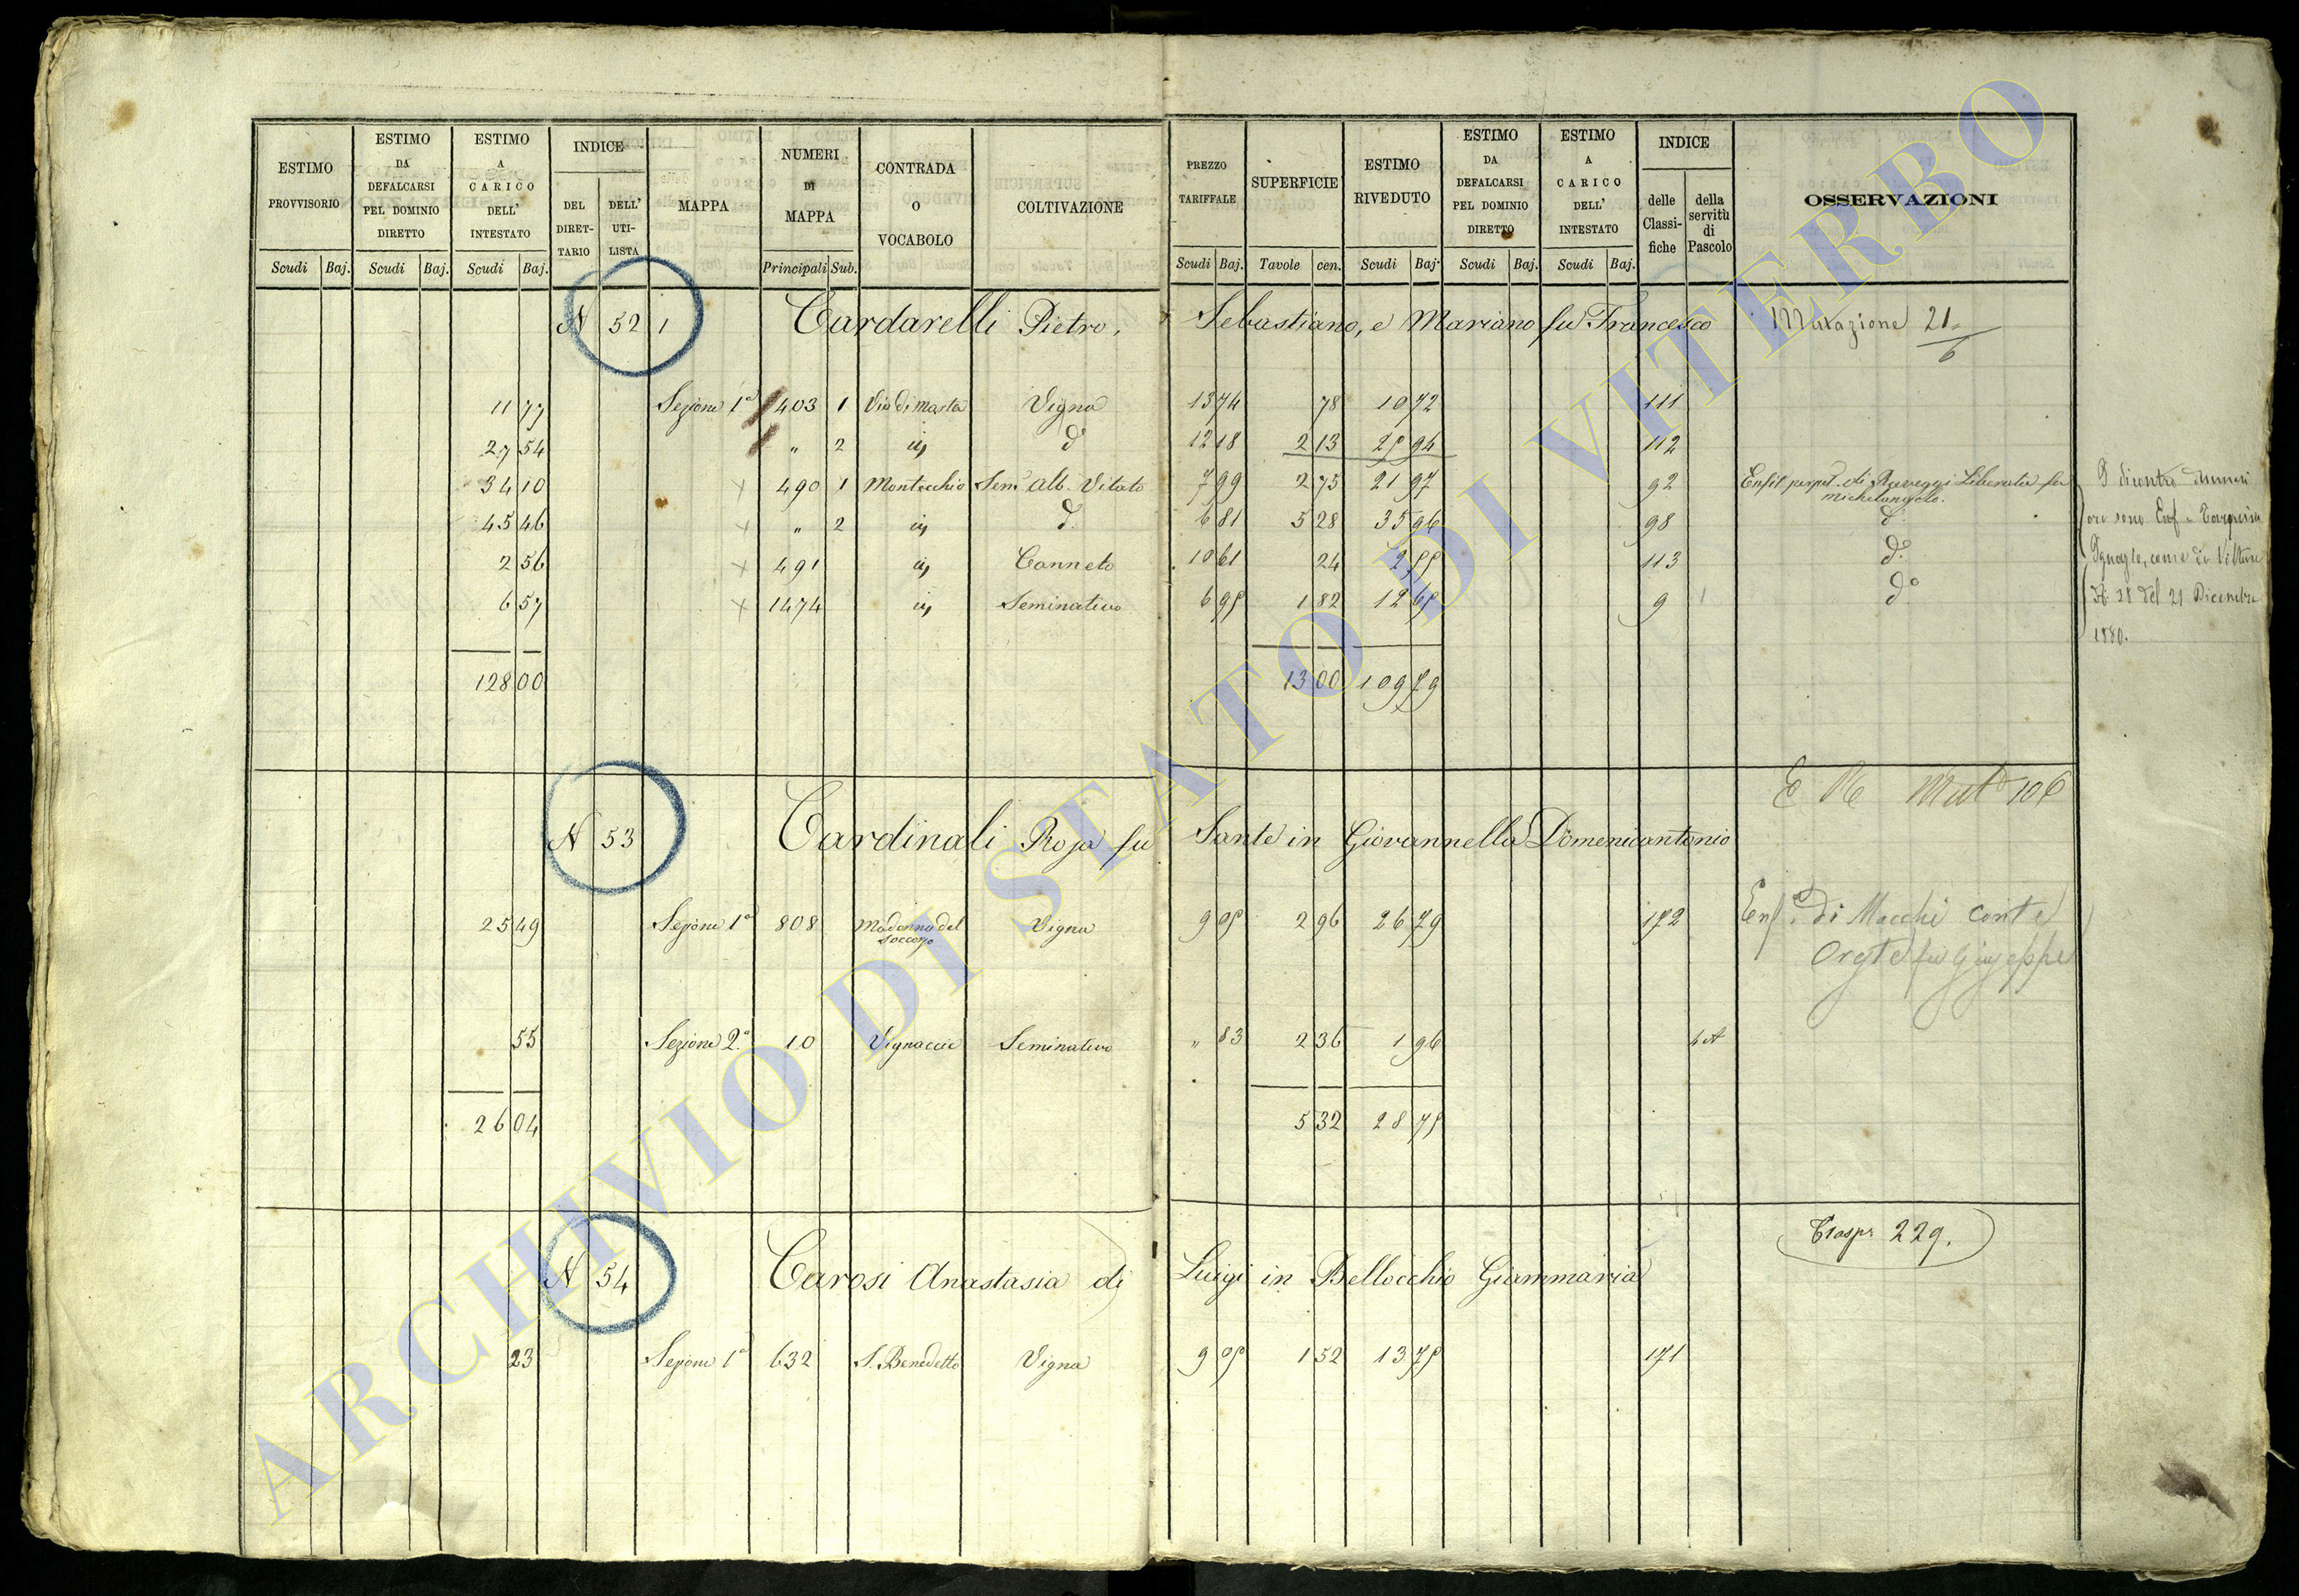 ESTIMO PROVVISORIO | ESTIMO DA DEFALCARSI PEL DOMINIO DIRETTO | ESTIMO A CARICO DELL' INTESTATO | INDICE | MAPPA | NUMERI DI MAPPA | CONTRADA O VOCABOLO | COLTIVAZIONE | PREZZO TARIFFALE | SUPERFICIE | ESTIMO RIVEDUTO | ESTIMO DA DEFALCARSI PEL DOMINIO DIRETTO | ESTIMO A CARICO DELL' INTESTATO | INDICE | OSSERVAZIONI
DEL DIRET-TARIO | DELL' UTI-LISTA | delle Classi-fiche | della servitù di Pascolo
Scudi | Baj. | Scudi | Baj. | Scudi | Baj. | Principali | Sub. | Scudi | Baj. | Tavole | cen. | Scudi | Baj. | Scudi | Baj. | Scudi | Baj.
N 52 1 Cardarelli Pietro, Sebastiano, e Mariano fu Francesco Mutazione 21 6
11 77 Sezione 1a 403 1 Via di Marta Vigna 13 74 78 10 72 111
27 54 " 2 id d 12 18 2 13 25 94 112
34 10 490 1 Montecchio Sem. Alb. Vitato 7 99 2 75 21 97 92 Enfit. perpet. di Liberata fu Michelangelo.
45 46 " 2 id d. 6 81 5 28 35 96 98 d.
2 56 491 id Canneto 10 61 24 2 55 113 d.o
6 57 1474 id Seminativo 6 95 1 82 12 65 9 d.o
128 00 13 00 109 79
ora sono Enf.
come da Volture
N. 28 del 21 Dicembre
1880.
E Mut 106
N 53 Cardinali Rosa fu Sante in Giovannella Domenicantonio
25 49 Sezione 1a 808 Madonna del Soccorso Vigna 9 05 2 96 26 79 172 Enf. di Macchi Conte
Oreste fu Giuseppe
55 Sezione 2.a 10 Vignaccie Seminativo " 83 2 36 1 96 6 A
26 04 5 32 28 75
Trasp. 229.
N 54 Carosi Anastasia di Luigi in Bellocchio Giammaria
23 Sezione 1a 632 S. Benedetto Vigna 9 05 1 52 13 75 171
ARCHIVIO DI STATO DI VITERBO